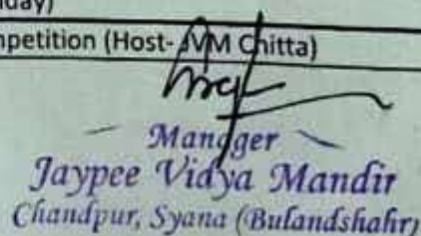 nday)
mpetition (Host- JVM Chitta)
Manager
Jaypee Vidya Mandir
Chandpur, Syana (Bulandshahr)